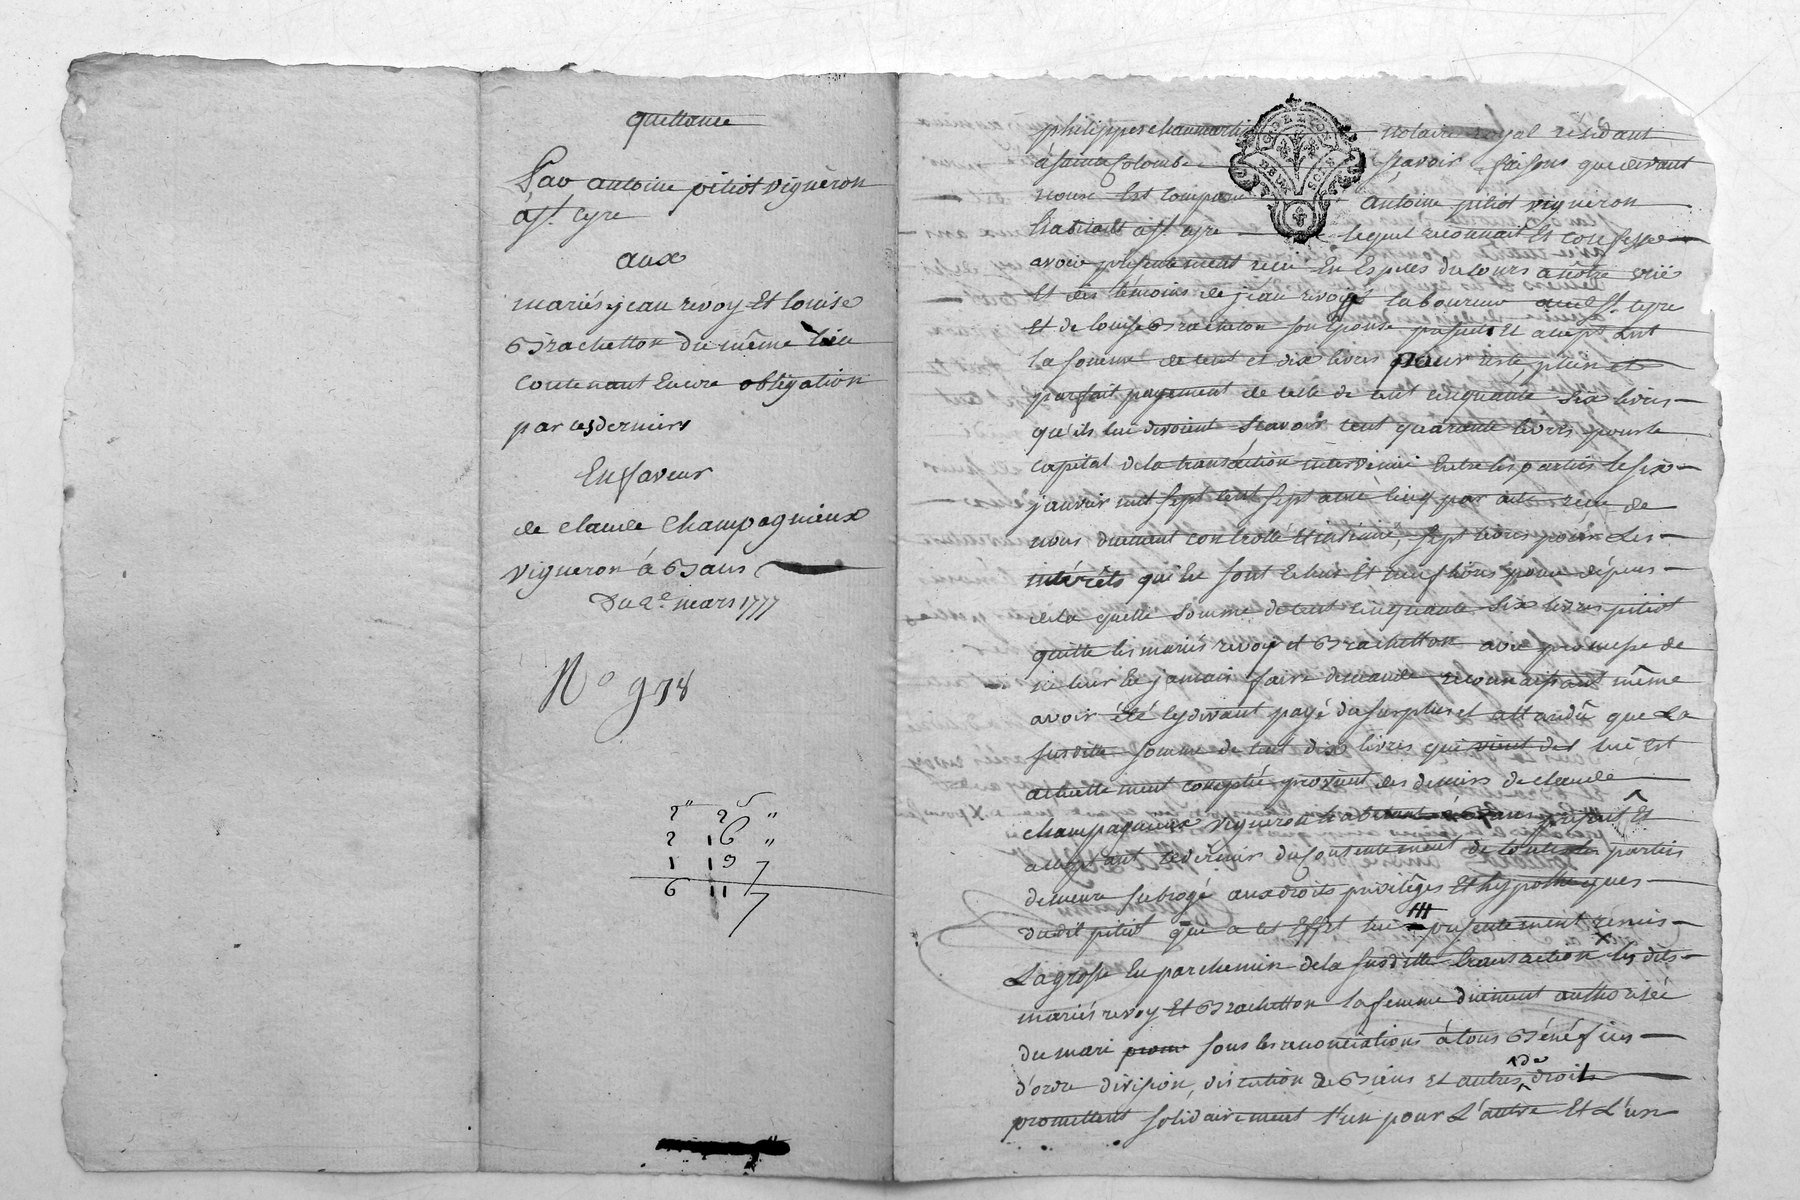 quittance
Par antoine pitiot vigneron
a St. Cyre
aux
mariés jean revoy Et louise
Brachetton du même lieu
contenant Encore obligation
par ces derniers
En faveur
de claude Champagnieux
vigneron à Bans
Du 2e mars 1777
No 978
2" 25 "
2 16 "
1 19 7
6 11 7
philippes chaumartin notaire royal residant
à sainte Colombe sçavoir faisons que devant
nous Est comparu antoine pitiot vigneron
habitant a St. cyre lequel reconnait Et confesse
avoir présentement reçu En Especes du cours a nôtre vüe
Et des témoins de jean revoy laboureur audit St. cyre
Et de louise Brachetton son Epouse présents Et acceptant
la somme de cent et dix livres pour reste, plein et
parfait payement de celle de cent cinquante six livres
qu'ils lui devoient sçavoir cent quarante livres pour le
capital de la transaction intervenüe Entre les parties le six
janvier mil sept cent sept ante cinq par acte reçu de
nous düement controllé Et insinué, sept livres pour Les
intérêts qui En sont Echus Et neuf livres pour dépens
de la quelle somme de cent cinquante six livres pitiot
quitte les mariés revoy et Brachetton avec promesse de
ne leur En jamais faire demande reconnaissant même
avoir été cy devant payé du surplus et attandû que La
susditte somme de cent dix livres qui vient de lui Est
actuellement comptée provient des deniers de claude
champagnieux vigneron habitant à Bans présent Et
acceptant ce dernier du consentement de toutes les parties
demeure subrogé aux droits privilêges Et hypotheques
dudit pitiot que a cet Effet lui a présentement remis
La grosse En parchemin de la susditte transaction les dits
mariés revoy Et Brachetton la femme düement authorisée
du mari sous les renonciations à tous Bénéfices
d'ordre division, discution de Biens et autres de droit
promettent solidairement l'un pour L'autre Et L'un